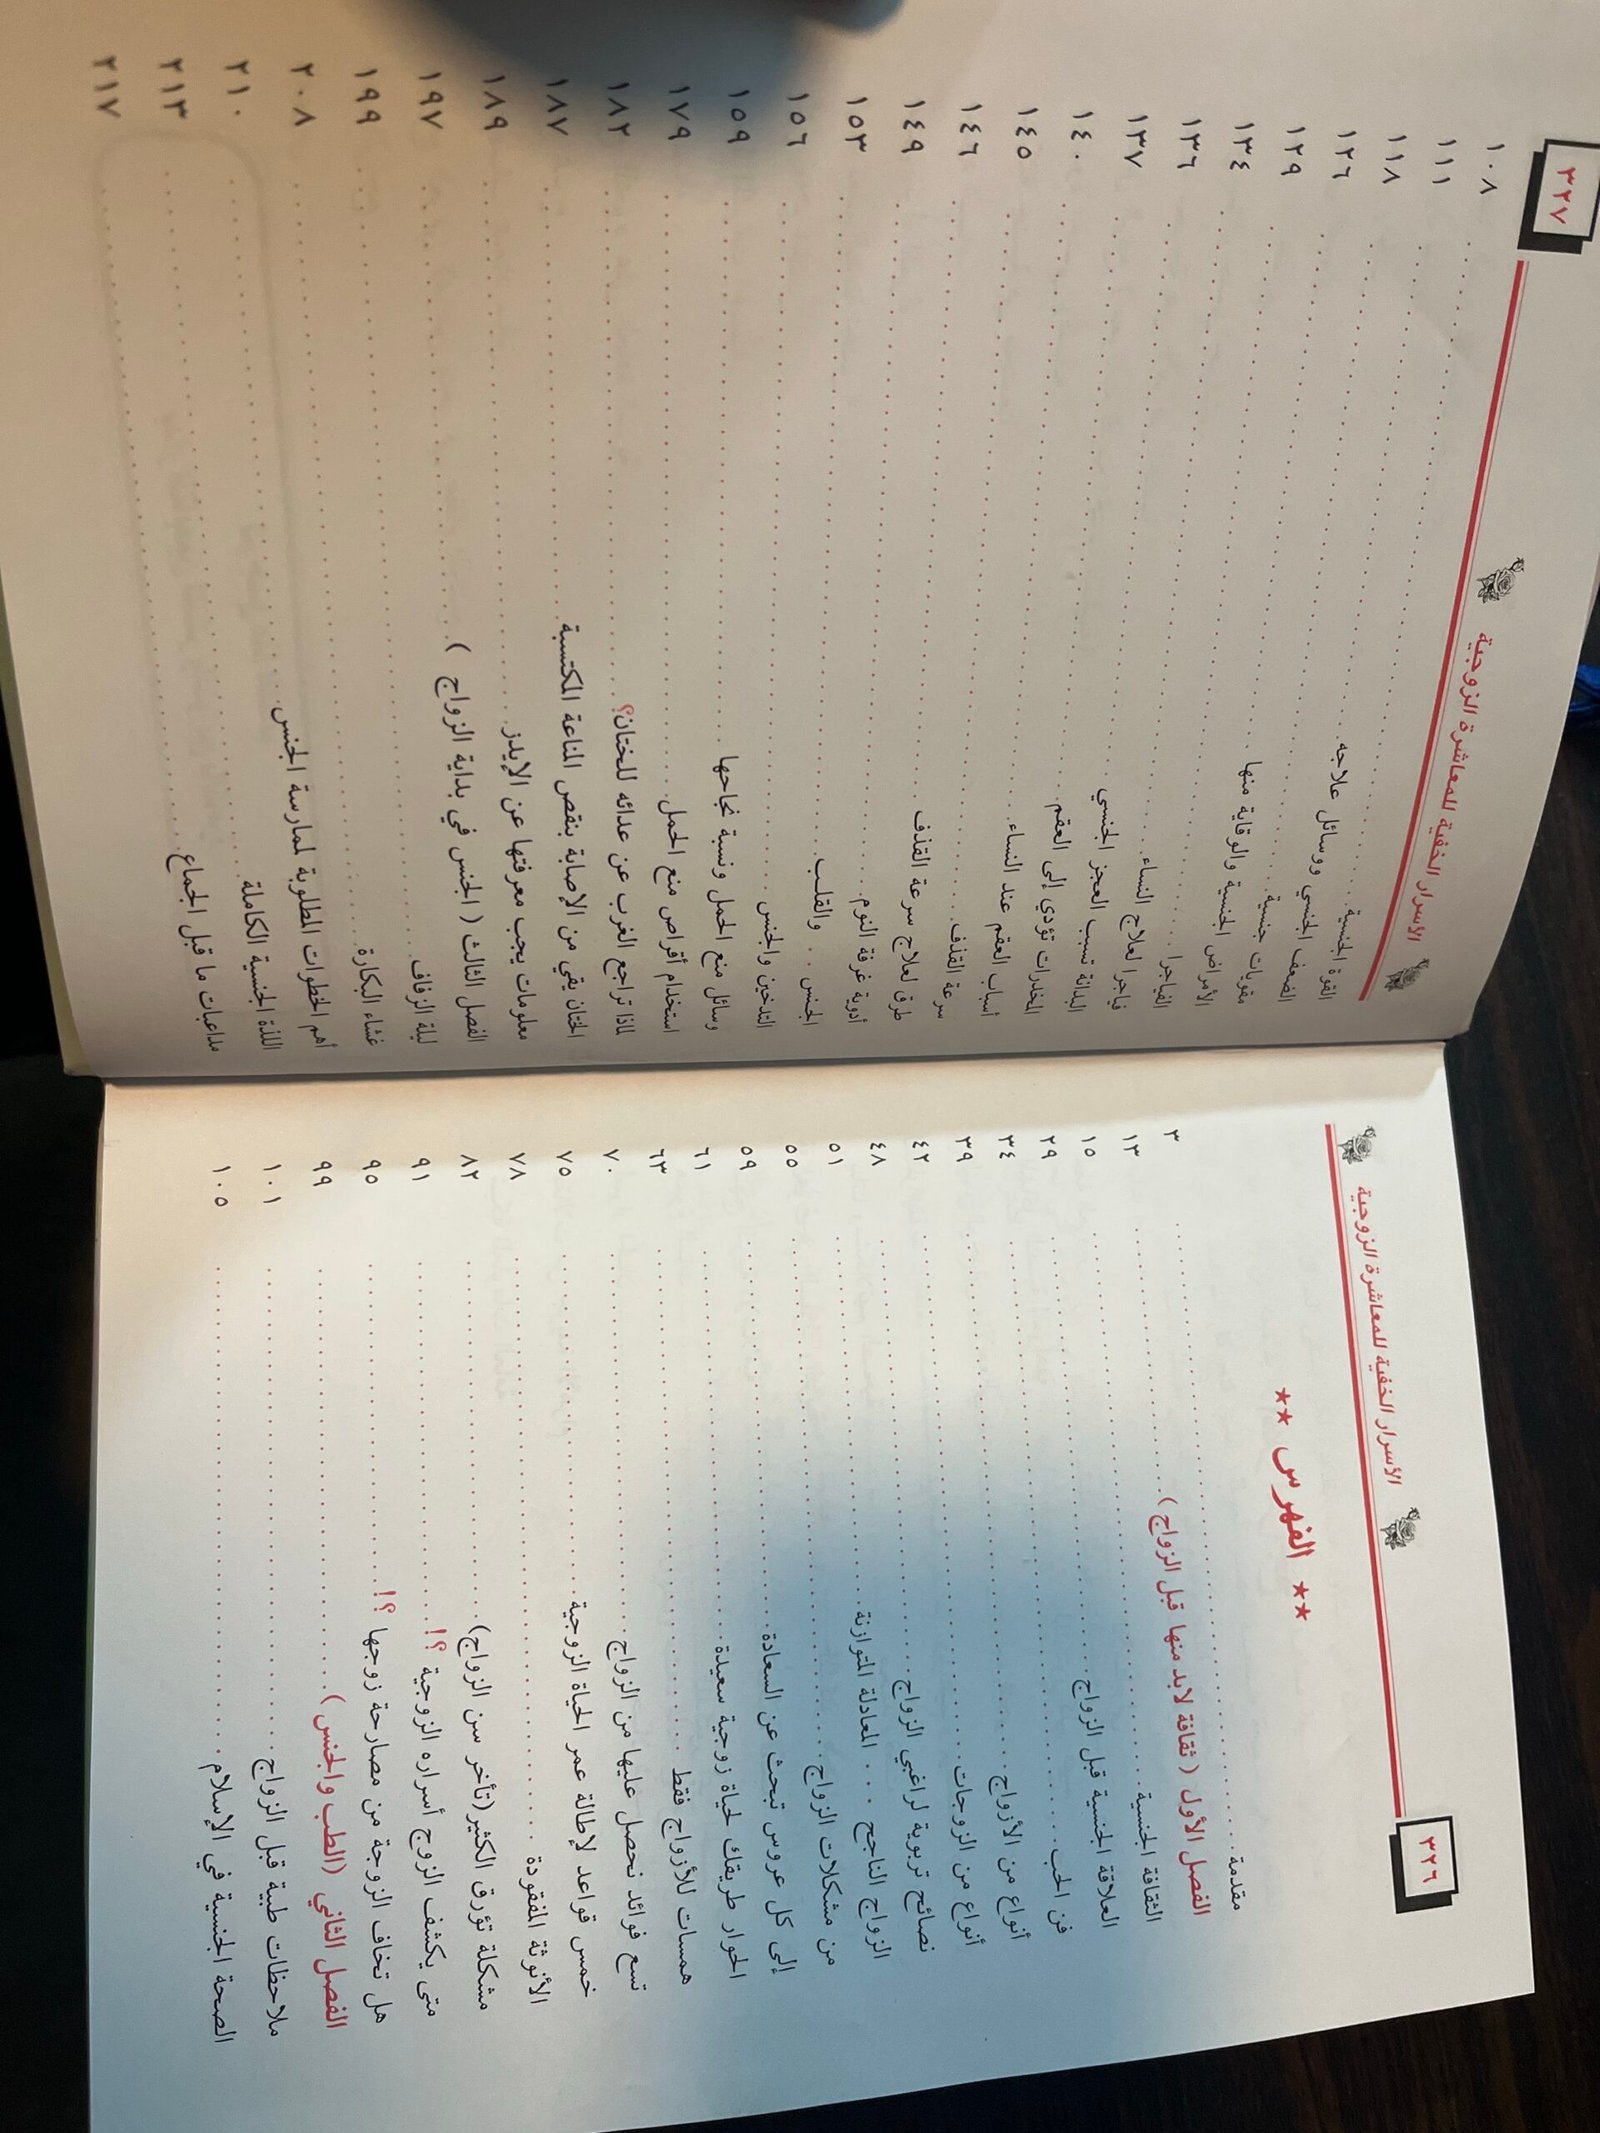 ٣٢٦ الأسرار الخفية للمعاشرة الزوجية
** الفهرس **
مقدمة ٣
الفصل الأول ( ثقافة لابد منها قبل الزواج ) ١٣
الثقافة الجنسية ١٥
العلاقة الجنسية قبل الزواج ٢٩
فن الحب ٣٤
أنواع من الأزواج ٣٩
أنواع من الزوجات ٤٢
نصائح تربوية لراغبي الزواج ٤٨
الزواج الناجح ... المعادلة المتوازنة ٥١
من مشكلات الزواج ٥٥
إلى كل عروس تبحث عن السعادة ٥٩
الحوار طريقك لحياة زوجية سعيدة ٦١
همسات للأزواج فقط ٦٣
تسع فوائد نحصل عليها من الزواج ٧٠
خمس قواعد لإطالة عمر الحياة الزوجية ٧٥
الأنوثة المفقودة ٧٨
مشكلة تؤرق الكثير (تأخر سن الزواج) ٨٢
متى يكشف الزوج أسراره الزوجية ؟! ٩١
هل تخاف الزوجة من مصارحة زوجها ؟! ٩٥
الفصل الثاني (الطب والجنس) ٩٩
ملاحظات طبية قبل الزواج ١٠١
الصحة الجنسية في الإسلام ١٠٥
الأسرار الخفية للمعاشرة الزوجية ٣٢٧
القوة الجنسية ١٠٨
الضعف الجنسي ووسائل علاجه ١١١
مقويات جنسية ١١٨
الأمراض الجنسية والوقاية منها ١٢٦
الفياجرا ١٢٩
فياجرا لعلاج النساء ١٣٤
البدانة تسبب العجز الجنسي ١٣٦
المخدرات تؤدي إلى العقم ١٣٧
أسباب العقم عند النساء ١٤٠
سرعة القذف ١٤٥
طرق لعلاج سرعة القذف ١٤٦
أدوية غرفة النوم ١٤٩
الجنس .. والقلب ١٥٣
التدخين والجنس ١٥٦
وسائل منع الحمل ونسبة نجاحها ١٥٩
استخدام أقراص منع الحمل ١٧٩
لماذا تراجع الغرب عن عدائه للختان؟ ١٨٢
الختان يقي من الإصابة بنقص المناعة المكتسبة ١٨٧
معلومات يجب معرفتها عن الإيدز ١٨٩
الفصل الثالث ( الجنس في بداية الزواج ) ١٩٧
ليلة الزفاف ١٩٩
غشاء البكارة ٢٠٨
أهم الخطوات المطلوبة لممارسة الجنس ٢١٠
اللذة الجنسية الكاملة ٢١٣
مداعبات ما قبل الجماع ٢١٧